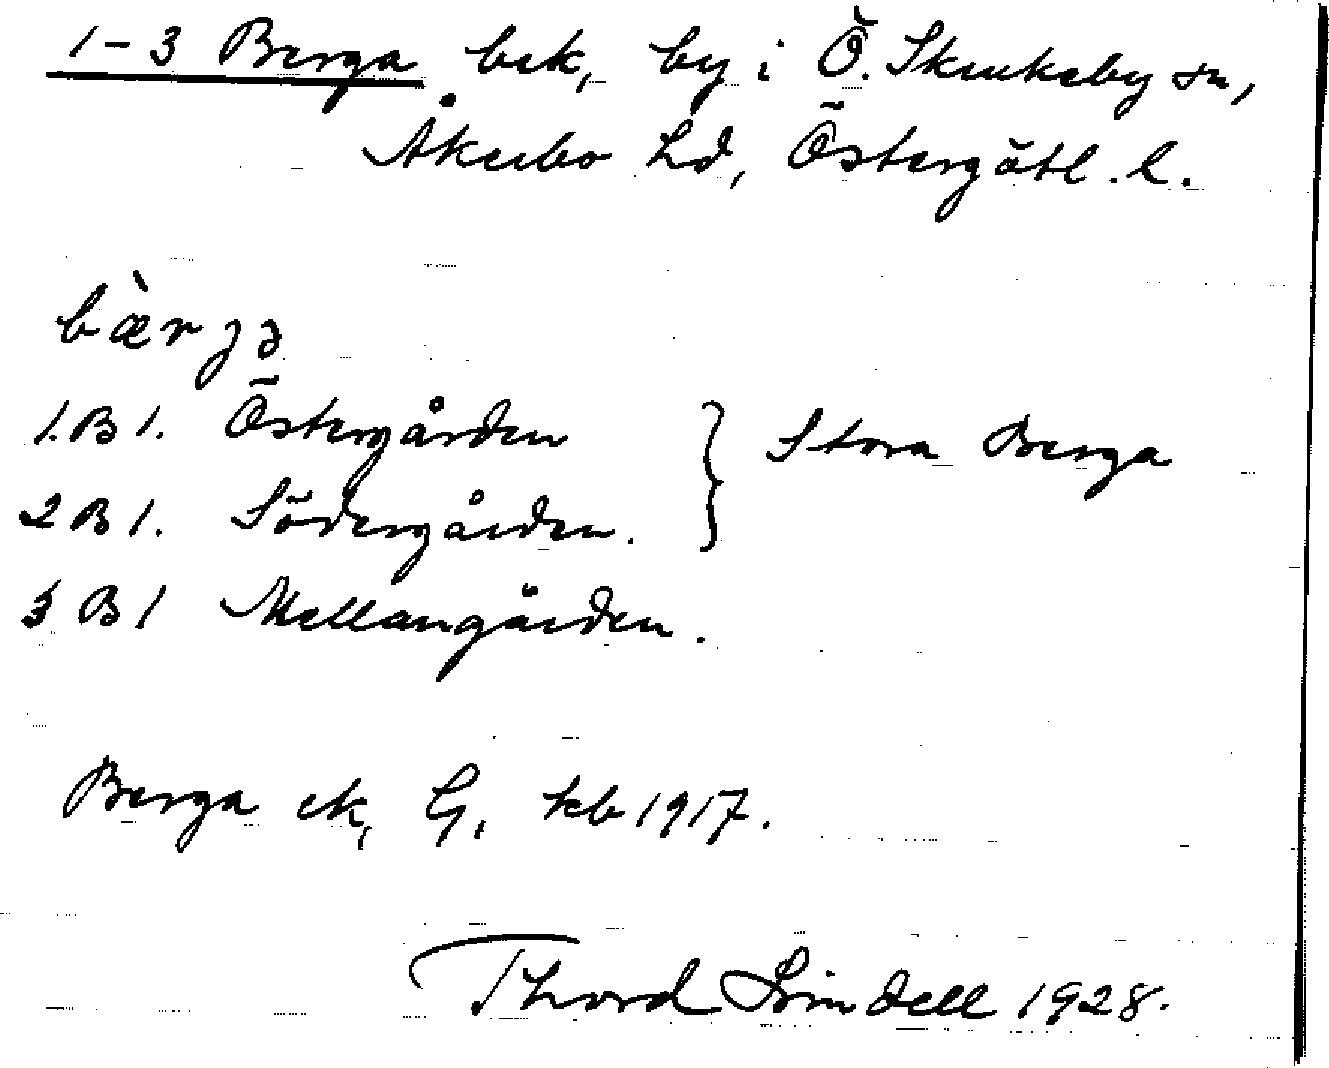 1-3 Berga bek, by i Ö. Skrukeby sn,
Åkerbo hd, Östergötl. l.
bæ̀rjə
1.B 1. Östergården } Stora Berga
2 B 1. Södergården.
3 B 1 Mellangården.
Berga ek, G, kb 1917.
Thord Lindell 1928.